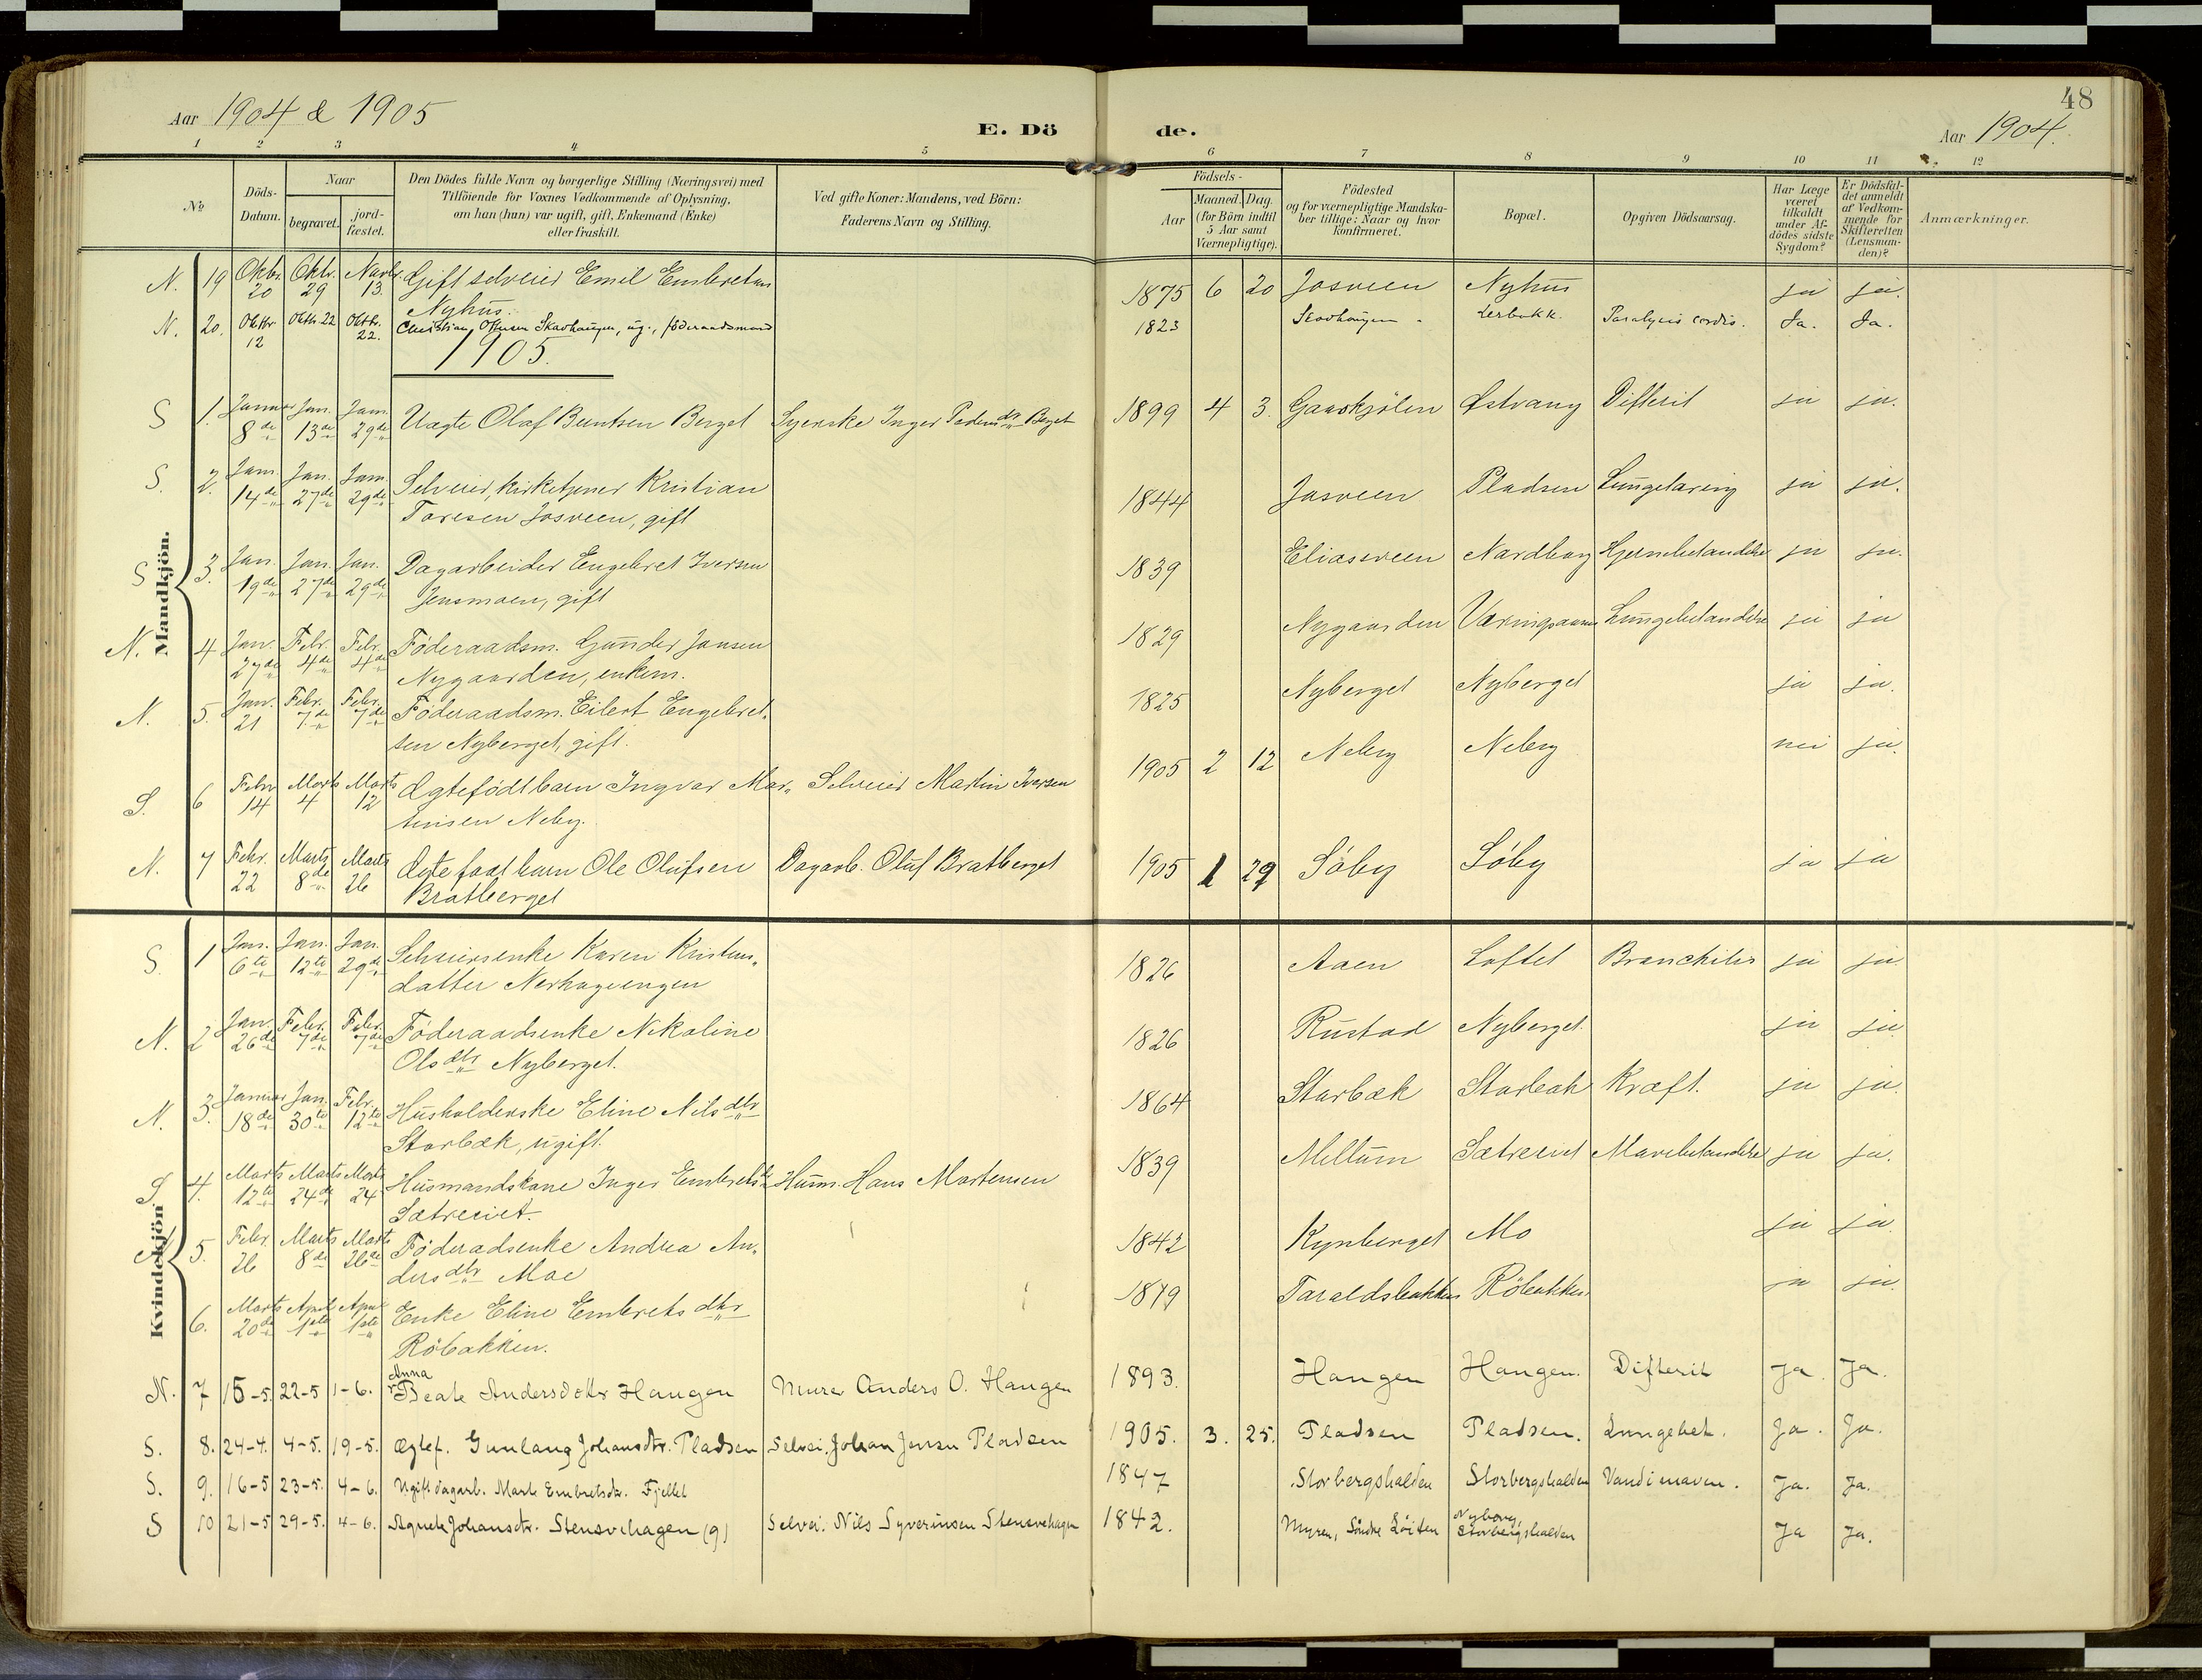 48
Aar 1904 & 1905
E. Dö de.
Aar 1904.
1 2 3 4 5 6 7 8 9 10 11 12
No
Döds-Datum.
Naar
begravet.
jord-fæstet.
Den Dödes fulde Navn og borgerlige Stilling (Næringsvei) med
Tilföiende for Voxnes Vedkommende af Oplysning,
om han (hun) var ugift, gift, Enkemand (Enke)
eller fraskilt.
Ved gifte Koner: Mandens, ved Börn:
Faderens Navn og Stilling.
Födsels-
Aar
Maaned. Dag.
(for Börn indtil
5 Aar samt
Værnepligtige).
Födested
og for værnepligtige Mandska-
ber tillige: Naar og hvor
konfirmeret.
Bopæl.
Opgiven Dödsaarsag.
Har Læge
været
tilkaldt
under Af-
dödes sidste
Sygdom?
Er Dödsfal-
det anmeldt
af Vedkom-
mende for
Skifteretten
(Lensman-
den)?
Anmærkninger.
Mandkjön.
N. 19 Oktbr. 20 Oktr. 29 Novbr. 13. Gift selveier Emil Embretsen Nyhus. 1875 6 20 Josveen Nyhus ja ja.
N. 20. Oktbr. 12 Oktbr. 22 Oktbr. 22. Christian Olsen Skovhaugen, ug., föderaadsmand 1823 Skovhaugen Lerbakk. Paralysis cordis. Ja. Ja.
1905.
S 1. Januar 8de Jan. 13de Jan. 29de Uægte Olaf Berntsen Berget Syerske Inger Pedersdtr Berget 1899 4 3. Gaaskjölen Østvang Difterit ja ja.
S. 2. Jan. 14de Jan. 27de Jan. 29de Selveier, kirketjener Kristian Toresen Josveen, gift 1844 Josveen Pladsen ja ja.
S 3. Jan. 19de Jan. 27de Jan. 29de Dagarbeider Engebret Iversen Jensmoen, gift 1839 Eliasveen Nordborg Hjernebetændelse ja ja.
N. 4 Jan. 27de Febr. 4de Febr. 4de Föderaadsm. Gunder Jansen Nygaarden, enkem. 1829 Nygaarden Lungebetændelse ja ja
N. 5. Jan. 21 Febr. 7de Febr. 7de Föderaadsm. Eilert Engebretsen Nyberget, gift. 1825 Nyberget Nyberget ja ja.
S. 6 Febr 14 Marts 4 Marts 12 Ægtefödt barn Ingvar Martinsen Neby. Selveier Martin Iversen 1905 2 12 Neby Neby nei ja.
N. 7 Febr. 22 Marts 8de Marts 26 Ægtefødt barn Ole Olufsen Bratberget Dagarb. Oluf Bratberget 1905 1 29 Söby Söby ja ja
Kvindekjön
S. 1 Jan. 6te Jan. 12te Jan. 29de Selveiersenke Karen Kristensdatter Nerhagenengen 1826 Aaen Loftet Bronchitis ja ja.
N. 2 Jan. 26de Febr. 7de Febr. 7de Föderaadsenke Nikoline Olsdtr Nyberget. 1826 Rustad Nyberget. ja ja.
N. 3. Januar 18de Jan. 30te Febr. 12te Husholderske Eline Nilsdtr Storbæk, ugift. 1864 Storbæk Storbæk Kræft. ja ja.
S. 4. Marts 12te Marts 24de Marts 24 Husmandskone Inger Embretsd. Sætreeiet. Husm. Hans Mortensen 1839 Mellum Sætreeiet Mavebetændelse ja ja.
N. 5. Febr. 26 Marts 8de Marts 26de Föderadsenke Andrea Andersdtr Moe 1842 Kynberget Mo ja ja
6. Marts 20de April 1ste April 1ste Enke Eline Embretsdtr Röbakken. 1879 Taraldsbakken Röbakken ja ja.
N. 7 15-5. 22-5 1-6. Anna Beate Andersdttr Haugen Murer Anders O. Haugen 1893. Haugen Haugen. Difterit Ja. Ja.
S. 8. 24-4. 4-5. 19-5. Ægtef. Gunlaug Johansdtr. Pladsen Selvei. Johan Jensen Pladsen 1905. 3. 25. Pladsen Pladsen. Lungebet. Ja. Ja.
S. 9. 16-5 23-5. 4-6. Ugift dagarb. Marte Embretsdtr. Fjellet 1847 Storbergshalden Storbergshalden Vand i maven. Ja. Ja.
S 10 21-5 29-5. 4-6. Agnete Johansdtr. Stensvehagen (g) Selvei. Nils Syverinsen Stensvehagen 1842. Myren, Söndre Löiten Nyborg, Storbergshalden Ja Ja.